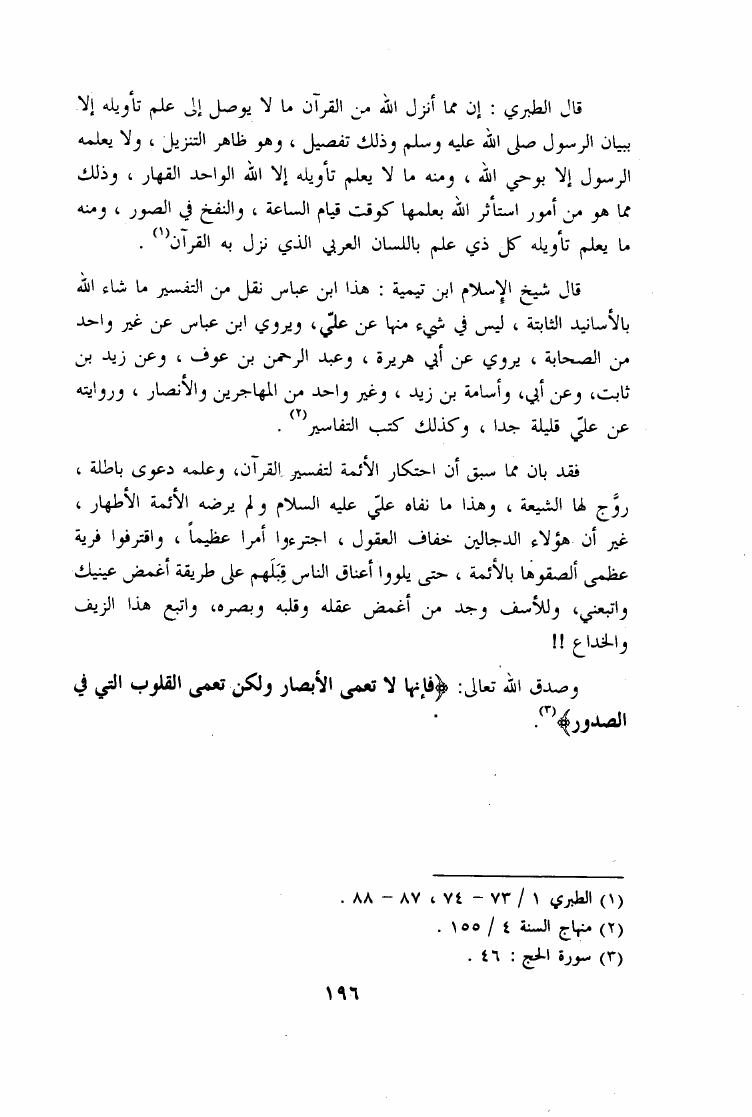 قال الطبري : إن مما أنزل الله من القرآن ما لا يوصل إلى علم تأويله إلا
ببيان الرسول صلى الله عليه وسلم وذلك تفصيل ، وهو ظاهر التنزيل ، ولا يعلمه
الرسول إلا بوحي الله ، ومنه ما لا يعلم تأويله إلا الله الواحد القهار ، وذلك
مما هو من أمور استأثر الله بعلمها كوقت قيام الساعة ، والنفخ في الصور ، ومنه
ما يعلم تأويله كل ذي علم باللسان العربي الذي نزل به القرآن(١) .
قال شيخ الإسلام ابن تيمية : هذا ابن عباس نقل من التفسير ما شاء الله
بالأسانيد الثابتة ، ليس في شيء منها عن عليّ، ويروي ابن عباس عن غير واحد
من الصحابة ، يروي عن أبي هريرة ، وعبد الرحمن بن عوف ، وعن زيد بن
ثابت، وعن أبي، وأسامة بن زيد ، وغير واحد من المهاجرين والأنصار ، وروايته
عن عليّ قليلة جدا ، وكذلك كتب التفاسير(٢) .
فقد بان مما سبق أن احتكار الأئمة لتفسير القرآن، وعلمه دعوى باطلة ،
روَّج لها الشيعة ، وهذا ما نفاه عليّ عليه السلام ولم يرضه الأئمة الأطهار ،
غير أن هؤلاء الدجالين خفاف العقول ، اجترءوا أمرا عظيماً ، واقترفوا فرية
عظمى ألصقوها بالأئمة ، حتى يلووا أعناق الناس قِبَلَهم على طريقة أغمض عينيك
واتبعني، وللأسف وجد من أغمض عقله وقلبه وبصره، واتبع هذا الزيف
والخداع !!
وصدق الله تعالى: ﴿فإنها لا تعمى الأبصار ولكن تعمى القلوب التي في
الصدور﴾(٣).
(١) الطبري ١ / ٧٣ – ٧٤ ، ٨٧ – ٨٨ .
(٢) منهاج السنة ٤ / ١٥٥ .
(٣) سورة الحج : ٤٦ .
١٩٦